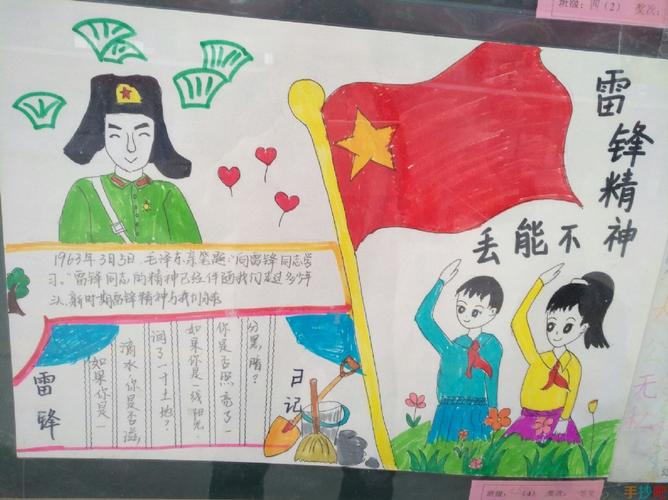 班级：四（2） 奖次：
雷锋精神
不能丢
1963年3月5日，毛泽东亲笔题"向雷锋同志学
习。"雷锋同志的精神已经伴随我们走过多少年
头，新时期雷锋精神与我们
雷锋
如果你是一
滴水，你是否滋
润了一寸土地？
如果你是一线阳光
你是否照亮了一
分黑暗？
日记
无私
（4）
手抄